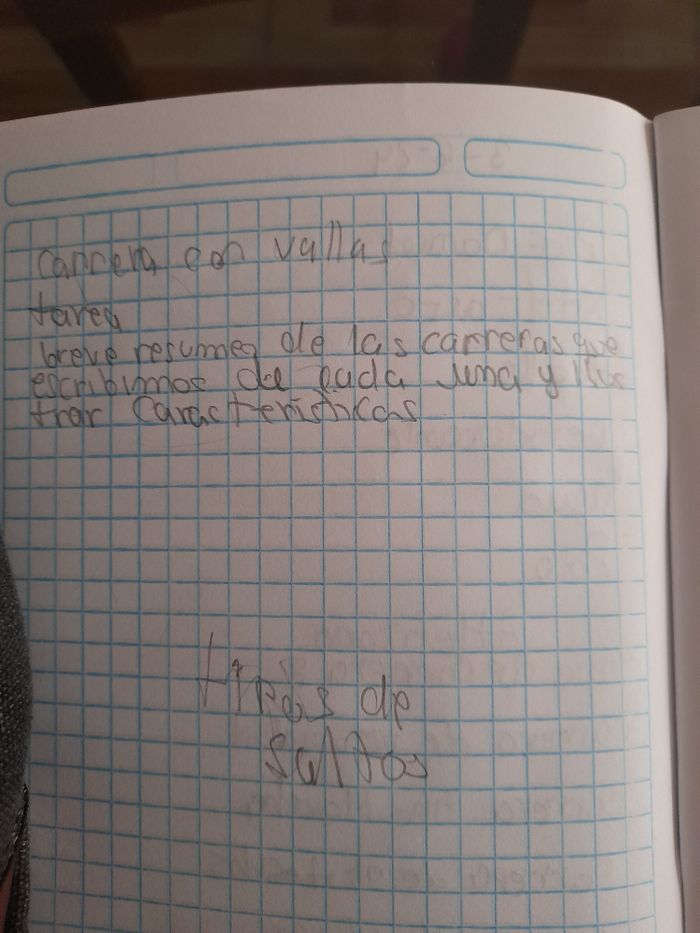 carrera con vallas
tarea
breve resumen de las carreras que
escribimos de cada una y ilus
trar caracteristicas
tipos de
saltos